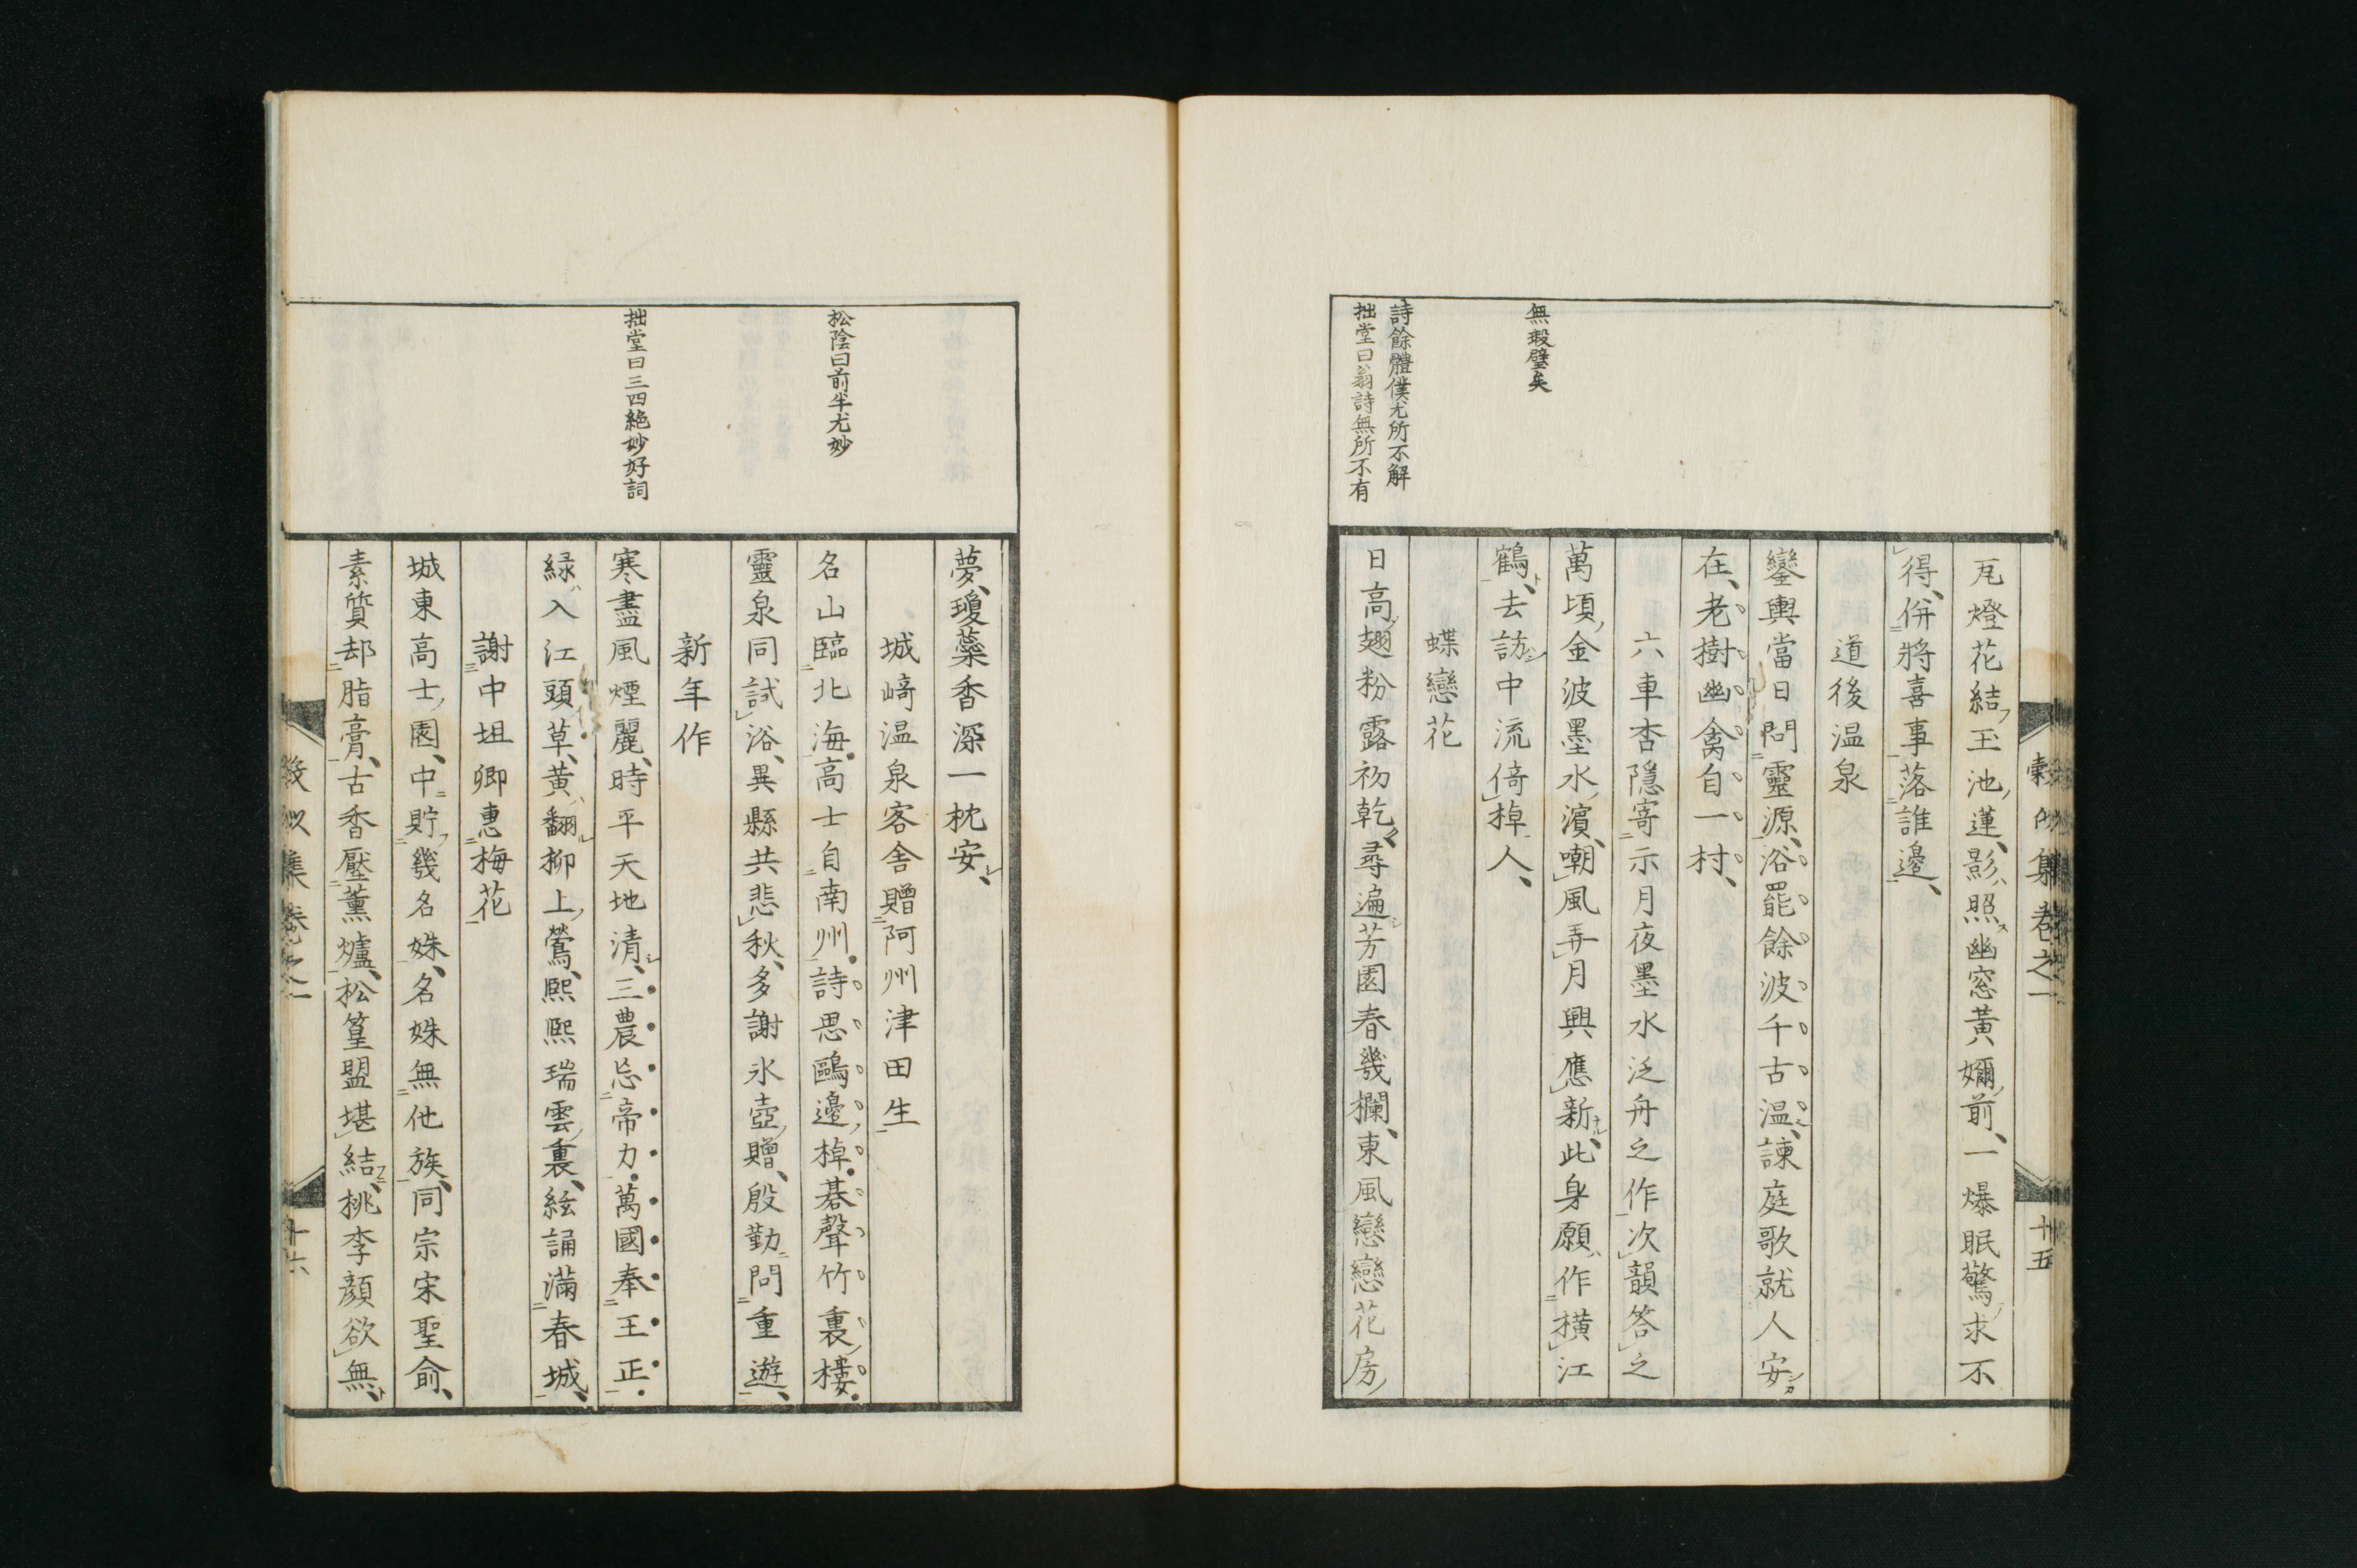 無瑕璧矣
詩餘體僕尤所不解
拙堂曰翁詩無所不有
卷之一
十五
瓦燈花結玉池蓮影照幽窓黃嬭前一爆眠驚求不
得併將喜事落誰邊
道後温泉
鑾輿當日問靈源浴罷餘波千古温諫庭歌就人安
在老樹幽禽自一村
六車杏隱寄示月夜墨水泛舟之作次韻答之
萬頃金波墨水濱嘲風弄月興應新此身願作橫江
鶴去訪中流倚棹人
蝶戀花
日高翅粉露初乾尋遍芳園春幾欄東風戀戀花房
松陰曰前半尤妙
拙堂曰三四絶妙好詞
夢瓊蘂香深一枕安
城崎温泉客舍贈阿州津田生
名山臨北海高士自南州詩思鷗邊棹碁聲竹裏樓
靈泉同試浴異縣共悲秋多謝氷壺贈殷勤問重遊
新年作
寒盡風煙麗時平天地清三農忘帝力萬國奉王正
緑入江頭草黄翻柳上鶯熙熙瑞雲裏絃誦滿春城
謝中坦卿惠梅花
城東高士園中貯幾名姝名姝無他族同宗宋聖俞
素質却脂膏古香壓薫爐松篁盟堪結桃李顏欲無
集卷之一
十六